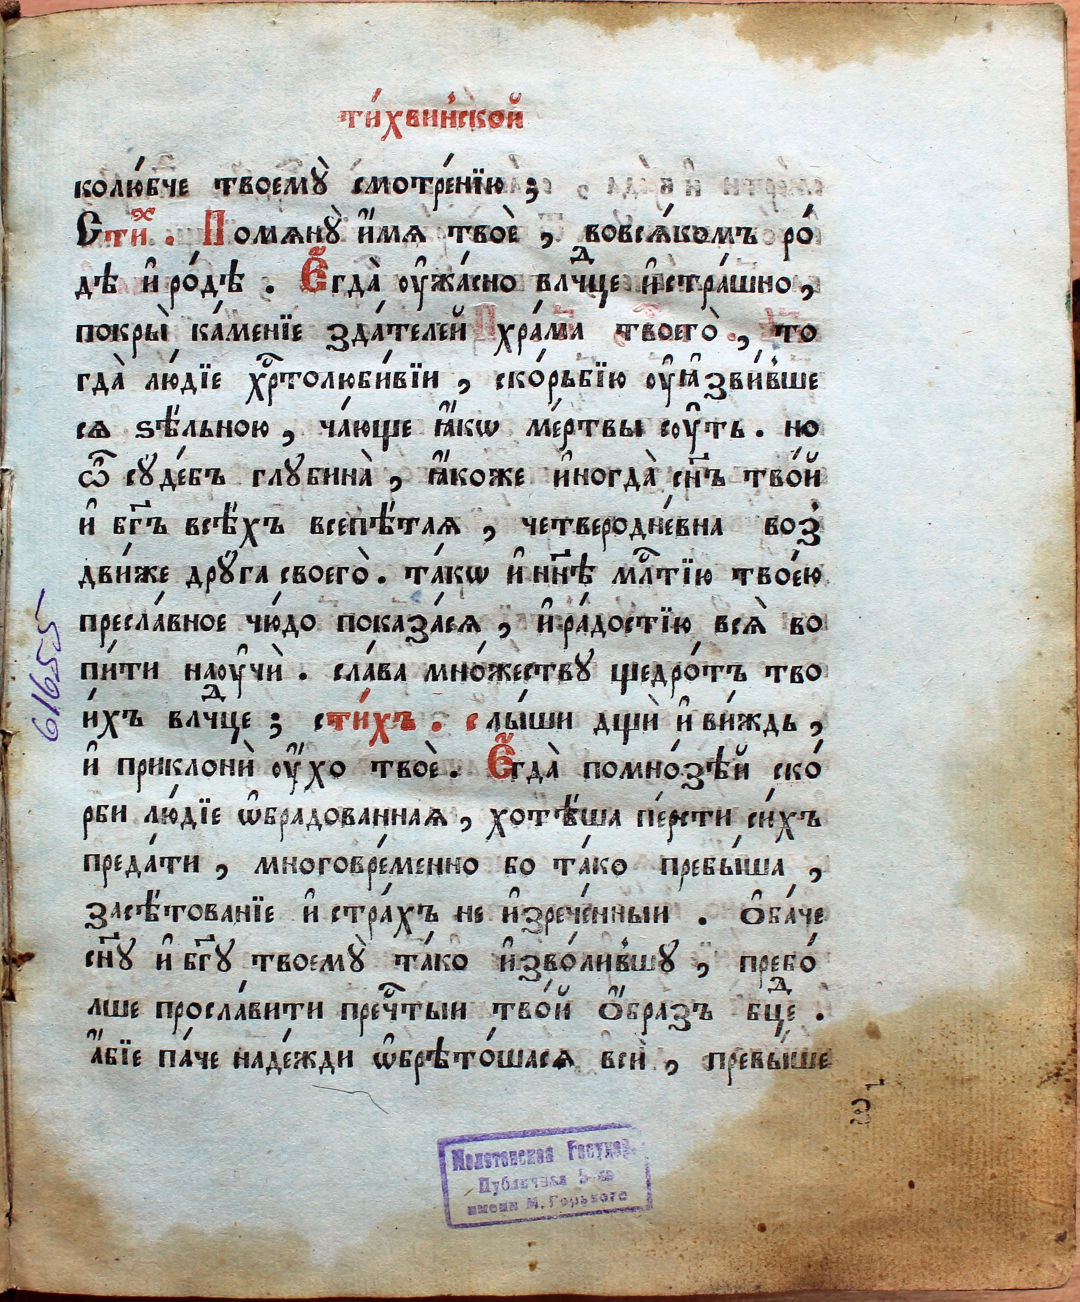 ти́хвин́ской
колю́бче твоемꙋ̀ смотре́нїю ;
Сти́х . Помѧнꙋ̀ и҆́мѧ твоѐ , вовсѧ́комъ ро́
дѣ и҆ ро́дѣ . Е҆гда̀ ᲂу҆жа́сно влⷣчце и҆ стра́шно ,
покры̀ ка́менїе зда́телей хра́ма твоего̀ , то
гда̀ лю́дїе хрⷭ҇толюби́вїи , ско́рьбїю ᲂу҆ꙗ҆зви́вше
сѧ ѕѣ́льною , ча́юще ꙗ҆́кѡ ме́ртвы сᲂу́ть . но
ѿ сꙋде́бъ глꙋбина̀ , ꙗ҆́коже и҆ногда̀ сн҃ъ тво́й
и҆ бг҃ъ всѣ́хъ всепѣ́таѧ , четверодне́вна воз
дви́же дрꙋ́га своего̀ . та́кѡ и҆ нн҃ѣ млⷭ҇тїю твое́ю
пресла́вное чю́до показа́сѧ , и҆ ра́достїю всѧ̀ во
пи́ти наᲂучѝ . сла́ва мно́жествꙋ щедро́тъ тво
и́хъ влⷣчце ; сти́хъ . слы́ши дщѝ и҆ ви́ждь ,
и҆ приклонѝ ᲂу҆́хо твоѐ . Е҆гда̀ помно́зѣй ско́
рби лю́дїе ѡ҆бра́дованнаѧ , хотѣ́ша пе́рсти си́хъ
преда́ти , многовре́менно бо та́ко пребы́ша ,
засѣ́тованїе и҆ стра́хъ не и҆зрече́нныи . ѻ҆ба́че
сн҃ꙋ и҆ бг҃ꙋ твоемꙋ̀ та́ко и҆зво́лившꙋ , пребо́
лше просла́вити пречⷭ҇тыи тво́й ѻ҆́бразъ бцⷣе .
а҆́бїе па́че наде́жди ѡ҆брѣто́шасѧ всѝ , превы́ше
61655
Молотовская Государ.
Публичная Б-ка
имени М. Горького